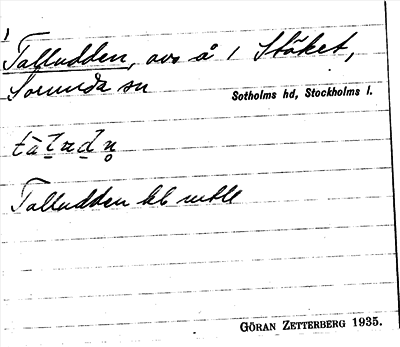 1
Talludden, avs å 1 Stöket,
Sorunda sn
Sotholms hd, Stockholms l.
Talludden
GÖRAN ZETTERBERG 1935.